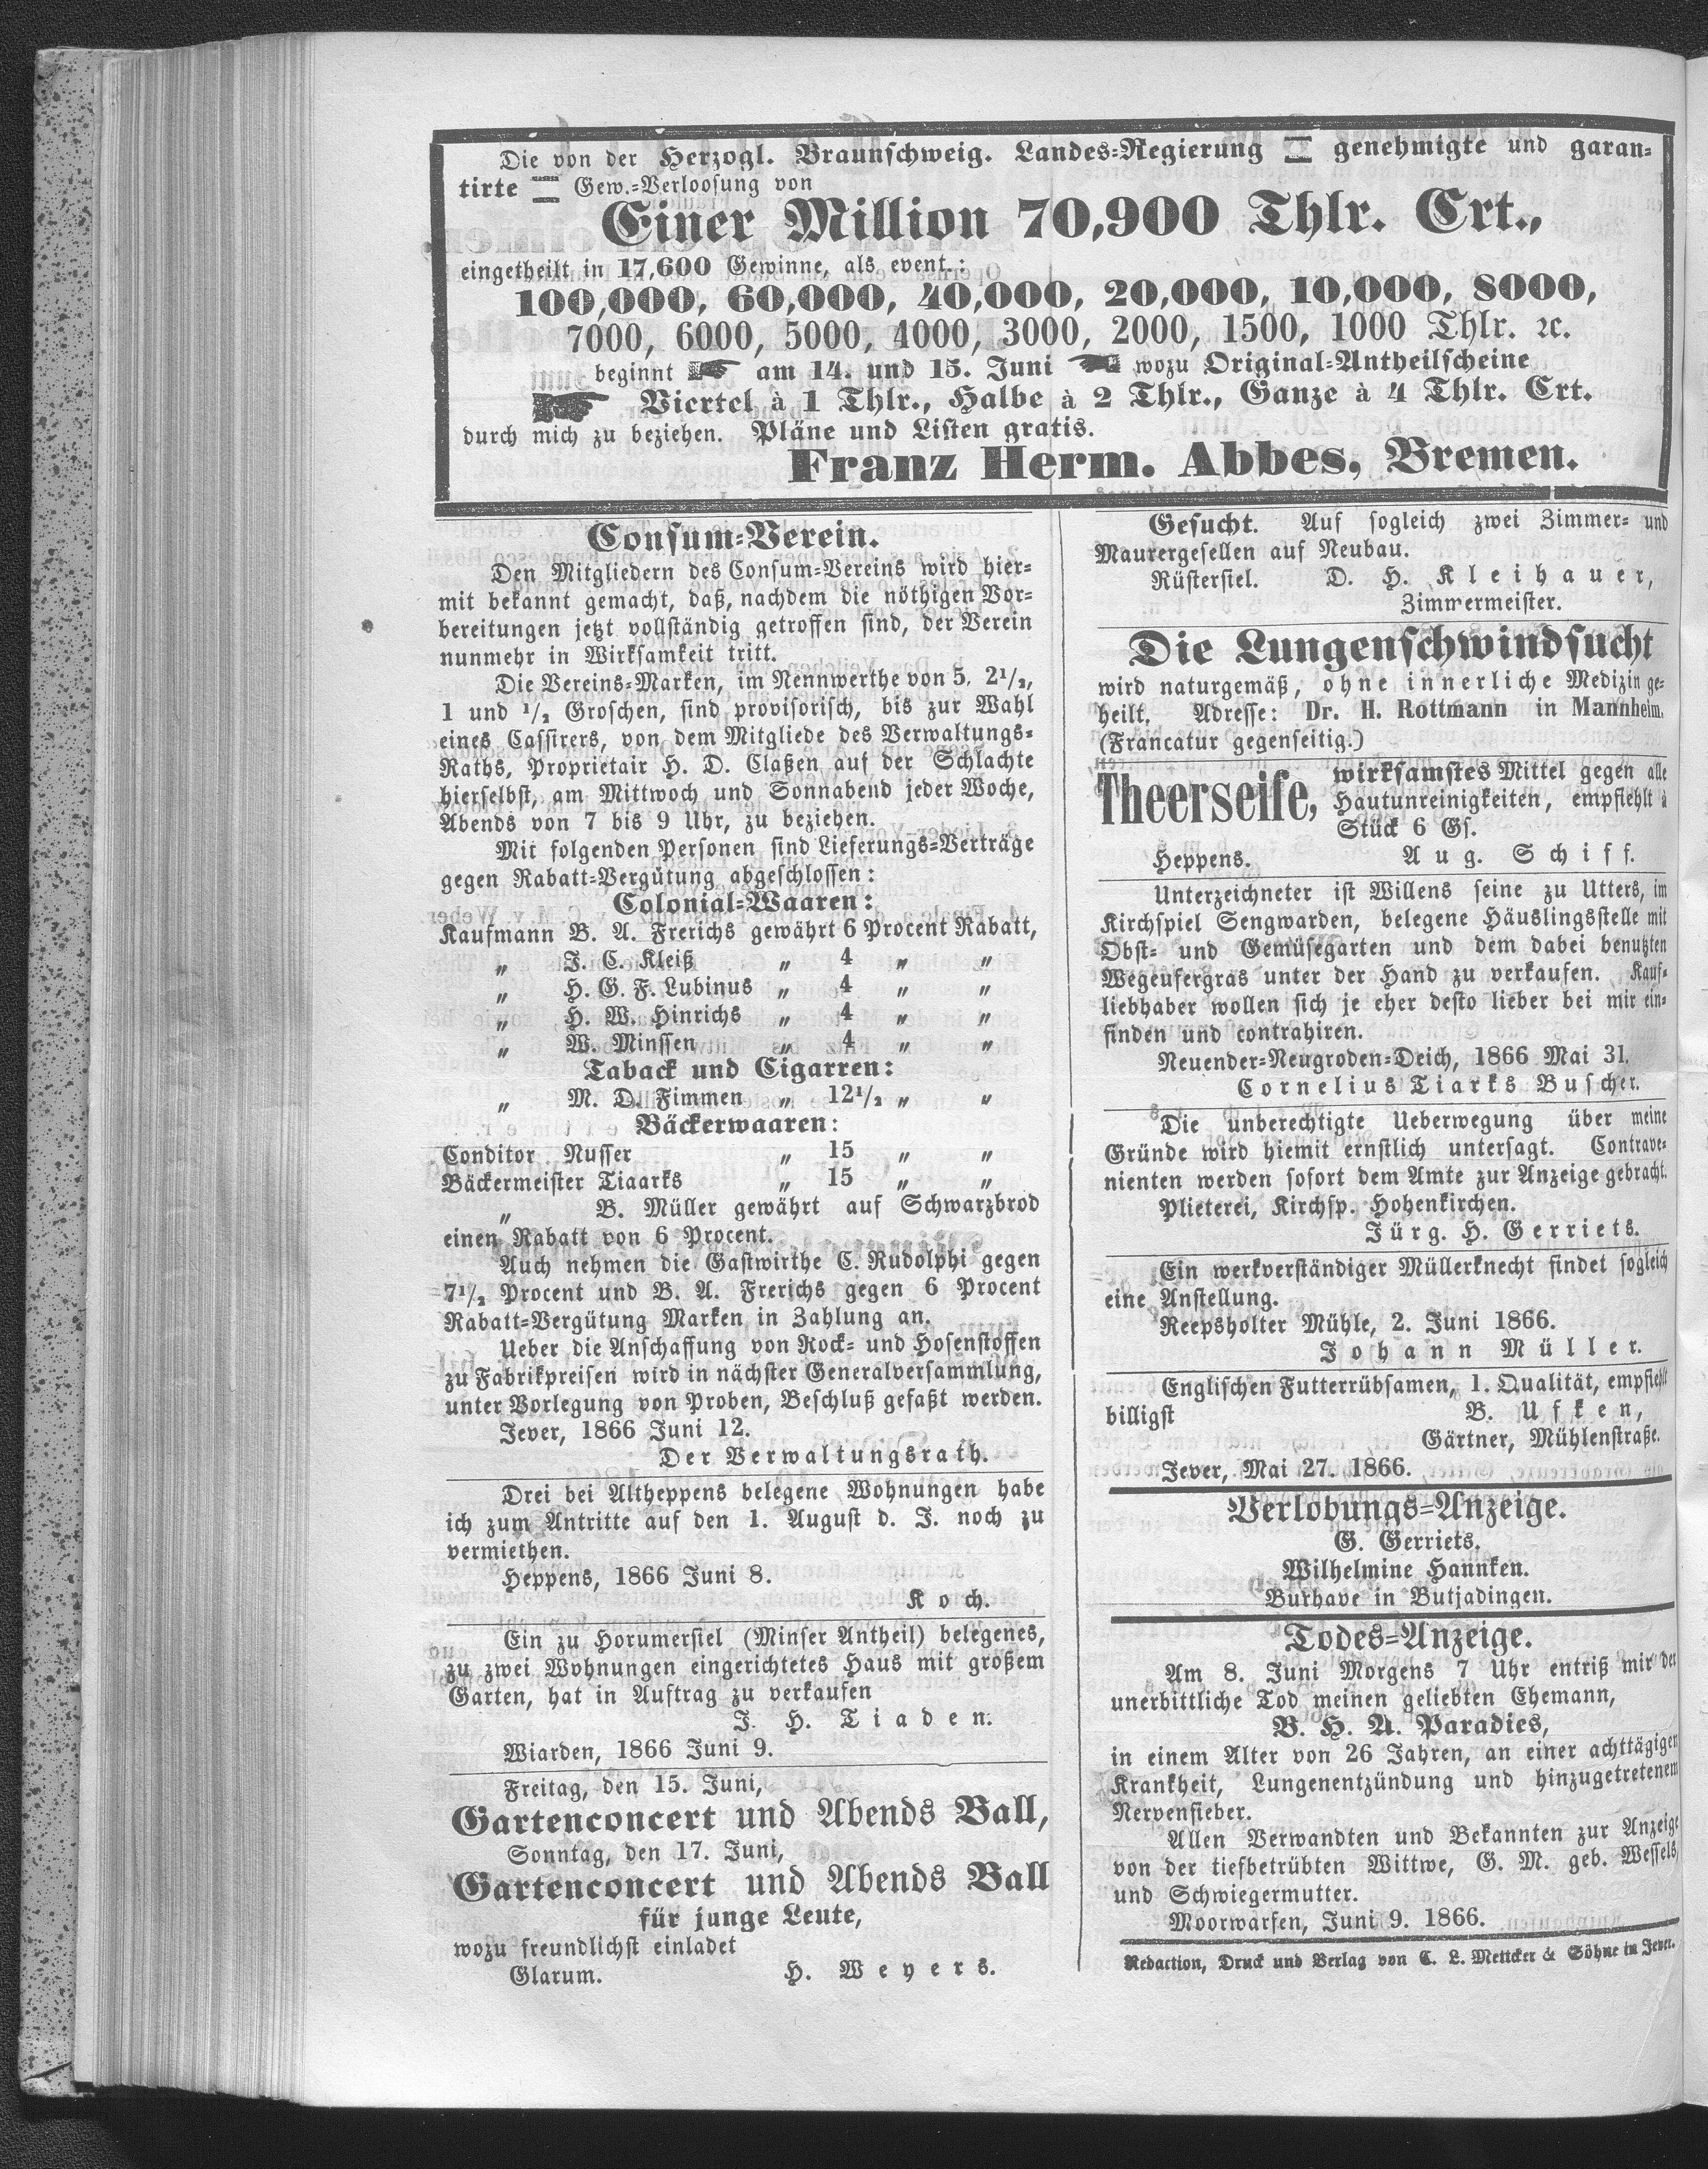 Die von der Herzogl. Braunschweig. Landes=Regierung genehmigte und garan=
tirte Gew.=Verloosung von
Einer Million 70,900 Thlr. Crt.,
eingetheilt in 17,600 Gewinne, als event.:
100,000, 60,000, 40,000, 20,000, 10,000, 8000,
7000, 6000, 5000, 4000, 3000, 2000, 1500, 1000 Thlr. ꝛc.
beginnt am 14. und 15. Juni wozu Original=Antheilscheine
Viertel à 1 Thlr., Halbe à 2 Thlr., Ganze à 4 Thlr. Crt.
durch mich zu beziehen. Pläne und Listen gratis.
Franz Herm. Abbes, Bremen.
Consum=Verein.
Den Mitgliedern des Consum=Vereins wird hier=
mit bekannt gemacht, daß, nachdem die nöthigen Vor=
bereitungen jetzt vollständig getroffen sind, der Verein
nunmehr in Wirksamkeit tritt.
Die Vereins=Marken, im Nennwerthe von 5, 2½,
1 und ½ Groschen, sind provisorisch, bis zur Wahl
eines Cassirers, von dem Mitgliede des Verwaltungs=
Raths, Proprietair H. D. Claßen auf der Schlachte
hierselbst, am Mittwoch und Sonnabend jeder Woche,
Abends von 7 bis 9 Uhr, zu beziehen.
Mit folgenden Personen sind Lieferungs=Verträge
gegen Rabatt=Vergütung abgeschlossen:
Colonial=Waaren:
Kaufmann B. A. Frerichs gewährt 6 Procent Rabatt,
„ J. C. Kleiß „ 4 „ „
„ H. G. F. Lubinus „ 4 „ „
„ H. W. Hinrichs „ 4 „ „
„ W. Minssen „ 4 „ „
Taback und Cigarren:
„ M. D. Fimmen „ 12½ „ „
Bäckerwaaren:
Conditor Nusser „ 15 „ „
Bäckermeister Tiaarks „ 15 „ „
„ B. Müller gewährt auf Schwarzbrod
einen Rabatt von 6 Procent.
Auch nehmen die Gastwirthe C. Rudolphi gegen
7½ Procent und B. A. Frerichs gegen 6 Procent
Rabatt=Vergütung Marken in Zahlung an.
Ueber die Anschaffung von Rock= und Hosenstoffen
zu Fabrikpreisen wird in nächster Generalversammlung,
unter Vorlegung von Proben, Beschluß gefaßt werden.
Jever, 1866 Juni 12.
Der Verwaltungsrath.
Drei bei Altheppens belegene Wohnungen habe
ich zum Antritte auf den 1. August d. J. noch zu
vermiethen.
Heppens, 1866 Juni 8.
Koch.
Ein zu Horumersiel (Minser Antheil) belegenes,
zu zwei Wohnungen eingerichtetes Haus mit großem
Garten, hat in Auftrag zu verkaufen
J. H. Tiaden.
Wiarden, 1866 Juni 9.
Freitag, den 15. Juni,
Gartenconcert und Abends Ball,
Sonntag, den 17. Juni,
Gartenconcert und Abends Ball
für junge Leute,
wozu freundlichst einladet
Glarum. H. Weyers.
Gesucht. Auf sogleich zwei Zimmer= und
Maurergesellen auf Neubau.
Rüstersiel. D. H. Kleihauer,
Zimmermeister.
Die Lungenschwindsucht
wird naturgemäß, ohne innerliche Medizin ge=
heilt. Adresse: Dr. H. Rottmann in Mannheim.
(Francatur gegenseitig.)
Theerseife, wirksamstes Mittel gegen alle
Hautunreinigkeiten, empfiehlt à
Stück 6 Gs.
Heppens. Aug. Schiff.
Unterzeichneter ist Willens seine zu Utters, im
Kirchspiel Sengwarden, belegene Häuslingsstelle mit
Obst= und Gemüsegarten und dem dabei benutzten
Wegeufergras unter der Hand zu verkaufen. Kauf=
liebhaber wollen sich je eher desto lieber bei mir ein=
finden und contrahiren.
Neuender=Neugroden=Deich, 1866 Mai 31.
Cornelius Tiarks Buscher.
Die unberechtigte Ueberwegung über meine
Gründe wird hiemit ernstlich untersagt. Contrave=
nienten werden sofort dem Amte zur Anzeige gebracht.
Plieterei, Kirchsp. Hohenkirchen.
Jürg. H. Gerriets.
Ein werkverständiger Müllerknecht findet sogleich
eine Anstellung.
Reepsholter Mühle, 2. Juni 1866.
Johann Müller.
Englischen Futterrübsamen, 1. Qualität, empfiehlt
billigst B. Ufken,
Gärtner, Mühlenstraße.
Jever, Mai 27. 1866.
Verlobungs=Anzeige.
G. Gerriets.
Wilhelmine Hannken.
Burhave in Butjadingen.
Todes=Anzeige.
Am 8. Juni Morgens 7 Uhr entriß mir der
unerbittliche Tod meinen geliebten Ehemann,
B. H. A. Paradies,
in einem Alter von 26 Jahren, an einer achttägigen
Krankheit, Lungenentzündung und hinzugetretenem
Nervenfieber.
Allen Verwandten und Bekannten zur Anzeige
von der tiefbetrübten Wittwe, G. M. geb. Wessels,
und Schwiegermutter.
Moorwarfen, Juni 9. 1866.
Redaction, Druck und Verlag von C. L. Mettcker & Söhne in Jever.